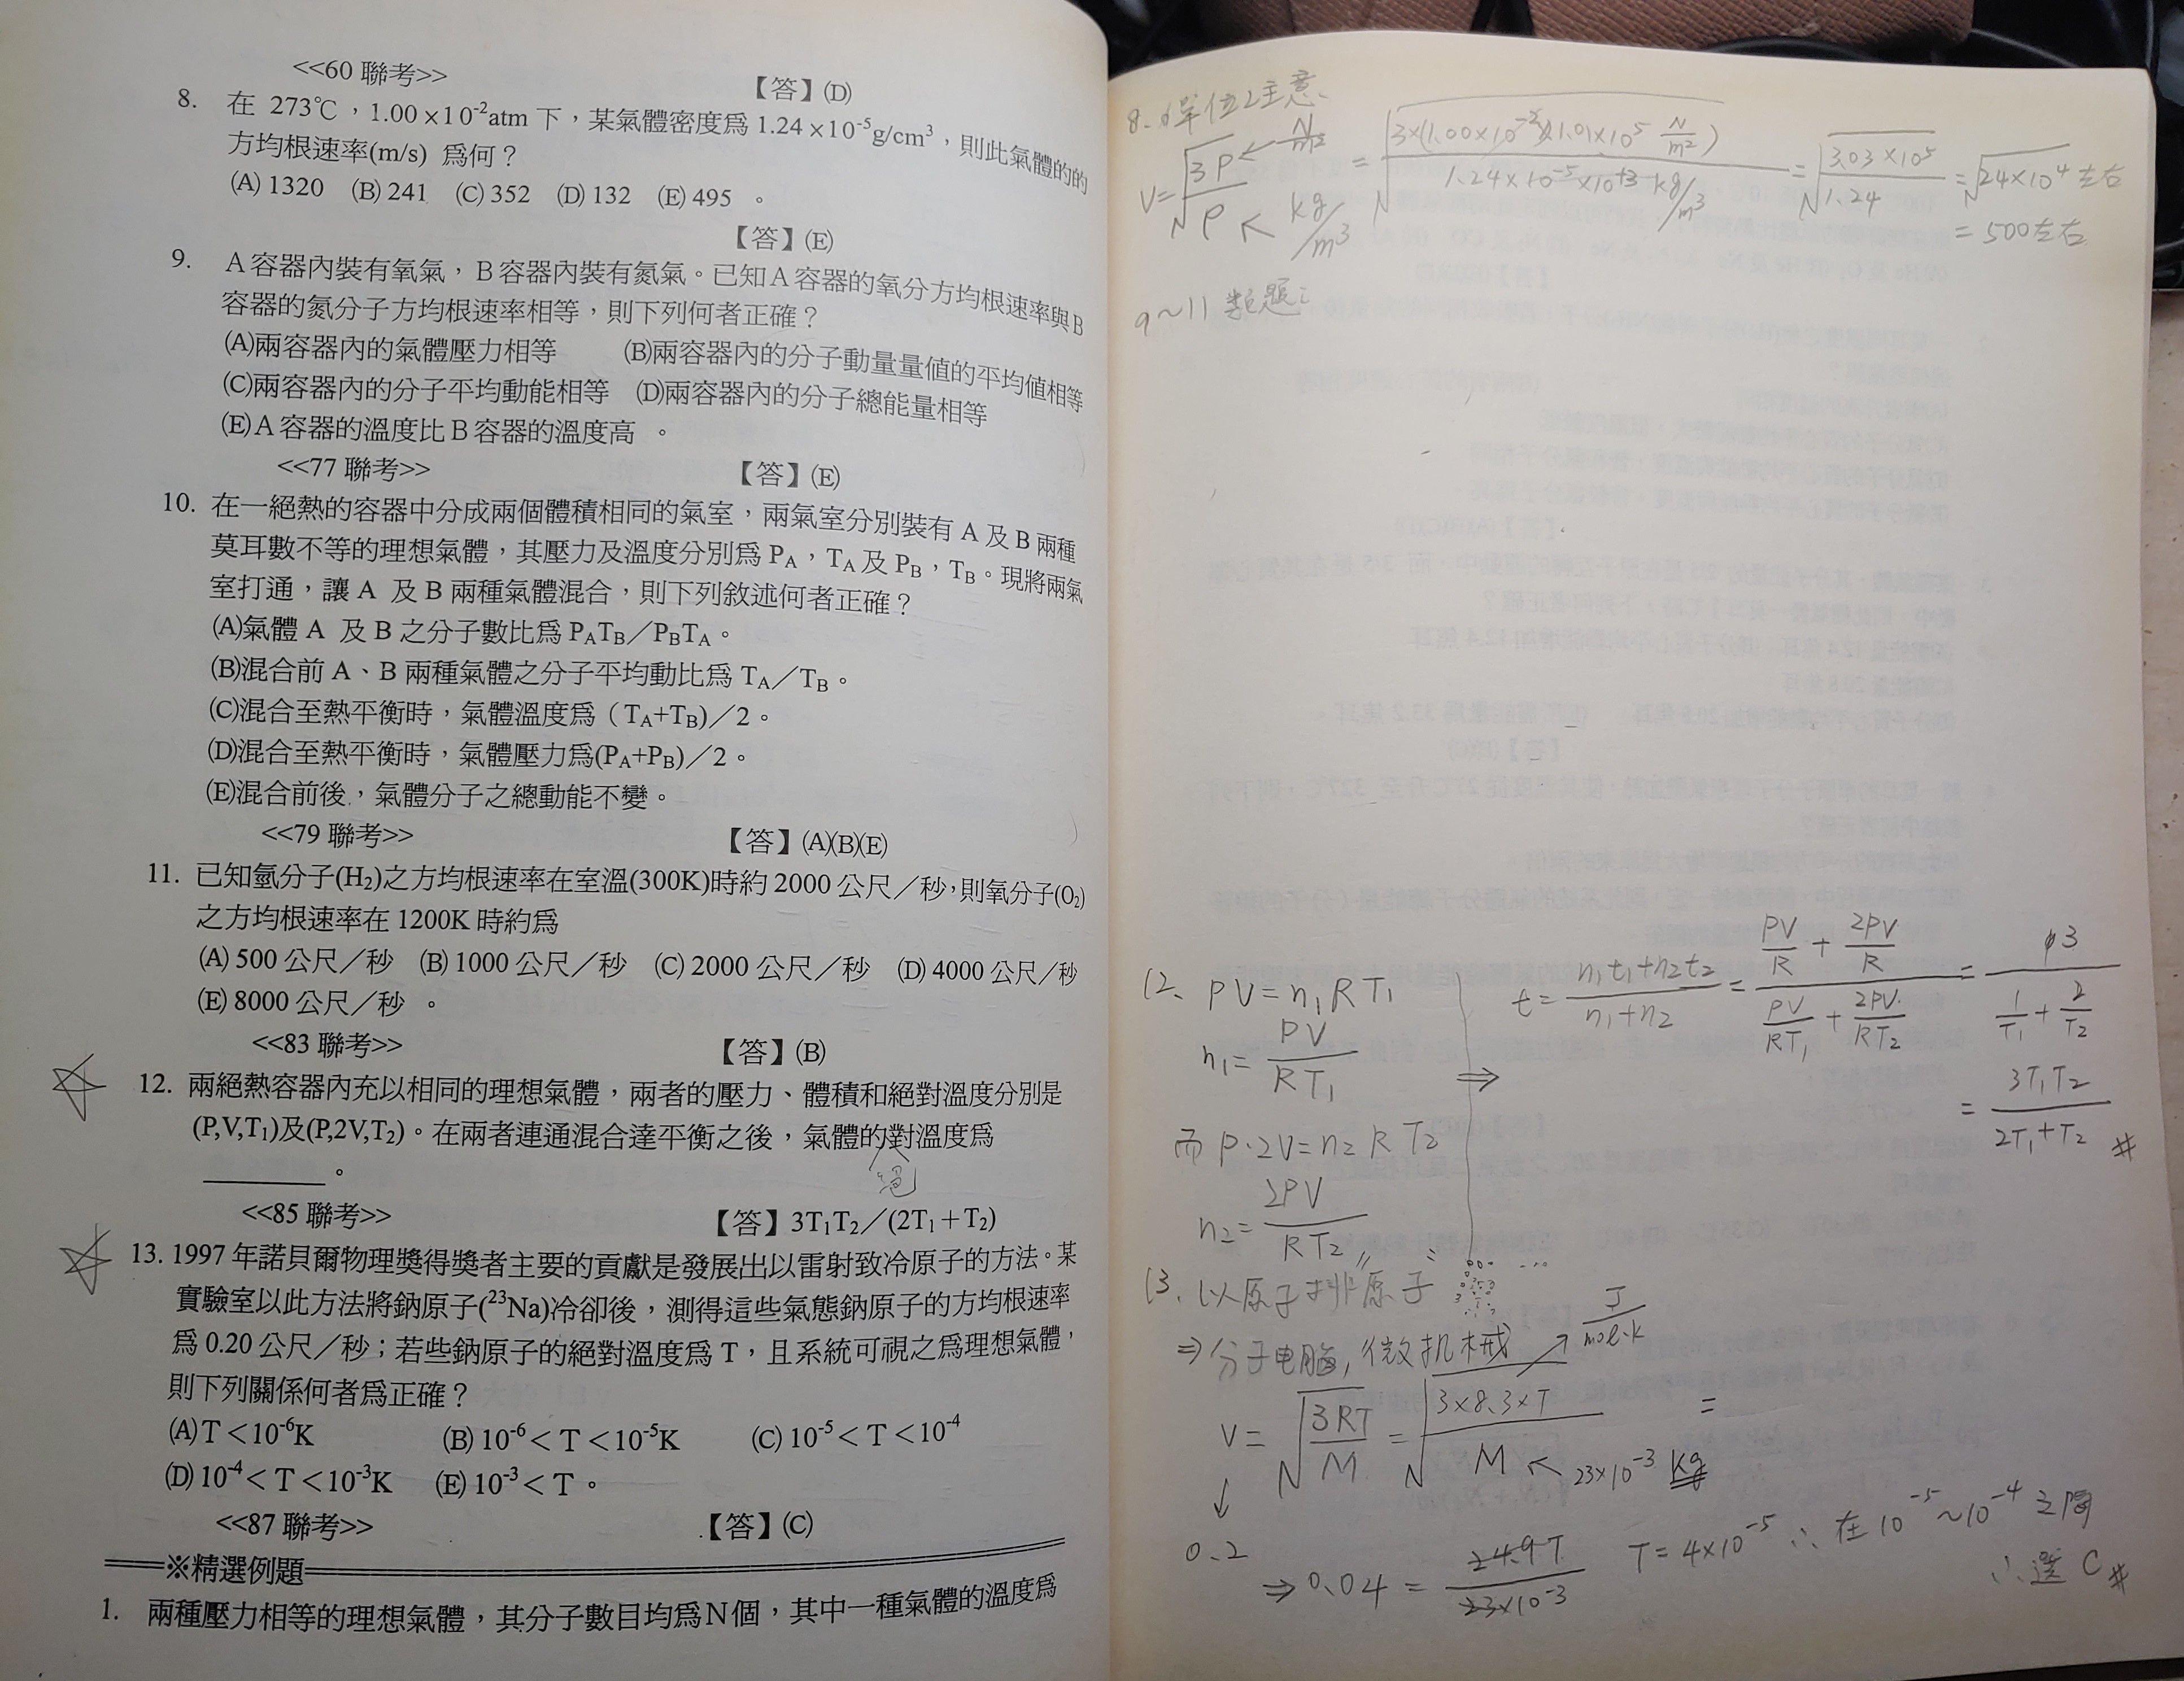 <<60 聯考>>
【答】(D)
8. 在 273℃，1.00×10⁻²atm 下，某氣體密度爲 1.24×10⁻⁵g/cm³，則此氣體的的
方均根速率(m/s) 爲何？
(A) 1320 (B) 241 (C) 352 (D) 132 (E) 495 。
【答】(E)
9. A容器內裝有氧氣，B容器內裝有氮氣。已知A容器的氧分方均根速率與B
容器的氮分子方均根速率相等，則下列何者正確？
(A)兩容器內的氣體壓力相等 (B)兩容器內的分子動量量值的平均值相等
(C)兩容器內的分子平均動能相等 (D)兩容器內的分子總能量相等
(E)A容器的溫度比B容器的溫度高 。
<<77 聯考>> 【答】(E)
10. 在一絕熱的容器中分成兩個體積相同的氣室，兩氣室分別裝有 A 及 B 兩種
莫耳數不等的理想氣體，其壓力及溫度分別爲 P_A，T_A 及 P_B，T_B。現將兩氣
室打通，讓 A 及 B 兩種氣體混合，則下列敘述何者正確？
(A)氣體 A 及 B 之分子數比爲 P_AT_B／P_BT_A。
(B)混合前 A、B 兩種氣體之分子平均動比爲 T_A／T_B。
(C)混合至熱平衡時，氣體溫度爲（T_A+T_B)／2。
(D)混合至熱平衡時，氣體壓力爲(P_A+P_B)／2。
(E)混合前後，氣體分子之總動能不變。
<<79 聯考>> 【答】(A)(B)(E)
11. 已知氫分子(H₂)之方均根速率在室溫(300K)時約 2000 公尺／秒，則氧分子(O₂)
之方均根速率在 1200K 時約爲
(A) 500 公尺／秒 (B) 1000 公尺／秒 (C) 2000 公尺／秒 (D) 4000 公尺／秒
(E) 8000 公尺／秒 。
<<83 聯考>> 【答】(B)
12. 兩絕熱容器內充以相同的理想氣體，兩者的壓力、體積和絕對溫度分別是
(P,V,T₁)及(P,2V,T₂)。在兩者連通混合達平衡之後，氣體的對溫度爲
絕
______。
<<85 聯考>> 【答】3T₁T₂／(2T₁＋T₂)
13. 1997 年諾貝爾物理獎得獎者主要的貢獻是發展出以雷射致冷原子的方法。某
實驗室以此方法將鈉原子(²³Na)冷卻後，測得這些氣態鈉原子的方均根速率
爲 0.20 公尺／秒；若些鈉原子的絕對溫度爲 T，且系統可視之爲理想氣體，
則下列關係何者爲正確？
(A) T＜10⁻⁶K (B) 10⁻⁶＜T＜10⁻⁵K (C) 10⁻⁵＜T＜10⁻⁴
(D) 10⁻⁴＜T＜10⁻³K (E) 10⁻³＜T 。
<<87 聯考>> 【答】(C)
※精選例題
1. 兩種壓力相等的理想氣體，其分子數目均爲N個，其中一種氣體的溫度爲
8. 單位注意、
V=√(3P/ρ) ← N/m² ← kg/m³ = √(3×(1.00×10⁻²)(1.01×10⁵ N/m²)/(1.24×10⁻⁵×10⁺³ kg/m³)) = √(3.03×10⁵/1.24) = √(24×10⁴) 左右
= 500左右
9~11 類題
12、PV=n₁RT₁
n₁=PV/RT₁
而 P·2V=n₂RT₂
n₂=2PV/RT₂
⇒ t=(n₁t₁+n₂t₂)/(n₁+n₂)=(PV/R+2PV/R)/(PV/RT₁+2PV/RT₂)=3/(1/T₁+2/T₂)
=3T₁T₂/(2T₁+T₂) #
13. 以原子排"原子"
⇒分子电脑, 微机械
J/mol·K
V=√(3RT/M)=√(3×8.3×T/M) ← 23×10⁻³ kg =
↓
0.2
⇒0.04=24.9T/23×10⁻³ T=4×10⁻⁵ ∴在10⁻⁵~10⁻⁴之間
∴選C#